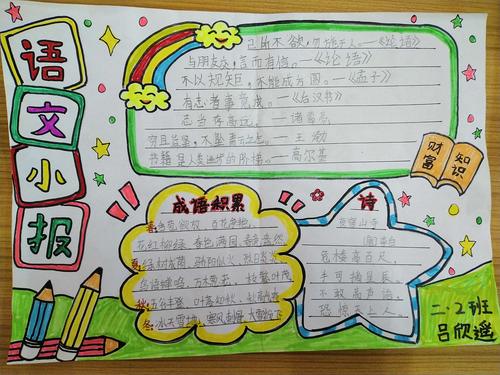 语
文
小
报
己所不欲,勿施于人。—《论语》
与朋友交,言而有信。—《论语》
不以规矩,不能成方圆。—《孟子》
有志者事竟成。—《后汉书》
志当存高远。—诸葛亮
穷且益坚,不坠青云之志。—王勃
书籍是人类进步的阶梯。—高尔基
财富
知识
成语积累
春
百花争艳
花红柳绿 春色满园
夏 绿树成荫 骄阳似火
鸟语蝉鸣 万木葱茏 枝繁叶茂
秋 五谷丰登 叶落知秋
冬 冰天雪地 寒风刺骨
诗
夜宿山寺
李白
危楼高百尺,
手可摘星辰。
不敢高声语,
恐惊天上人。
二.2班
吕欣遥